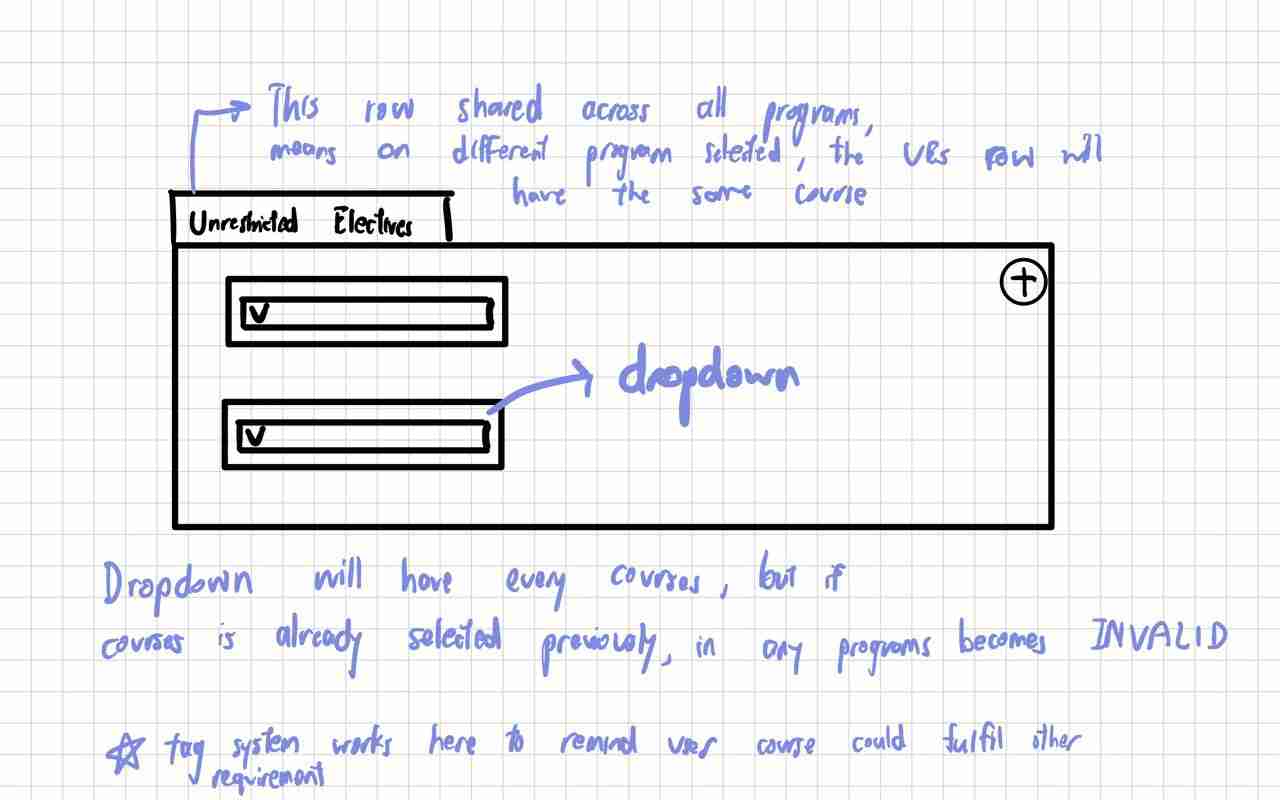 This row shared across all programs,
means on different program selected, the UEs row will
have the same course
Unrestricted Electives
+
V
dropdown
V
Dropdown will have every courses, but if
courses is already selected previously, in any programs becomes INVALID
☆ tag system works here to remind user course could fulfil other
requirement